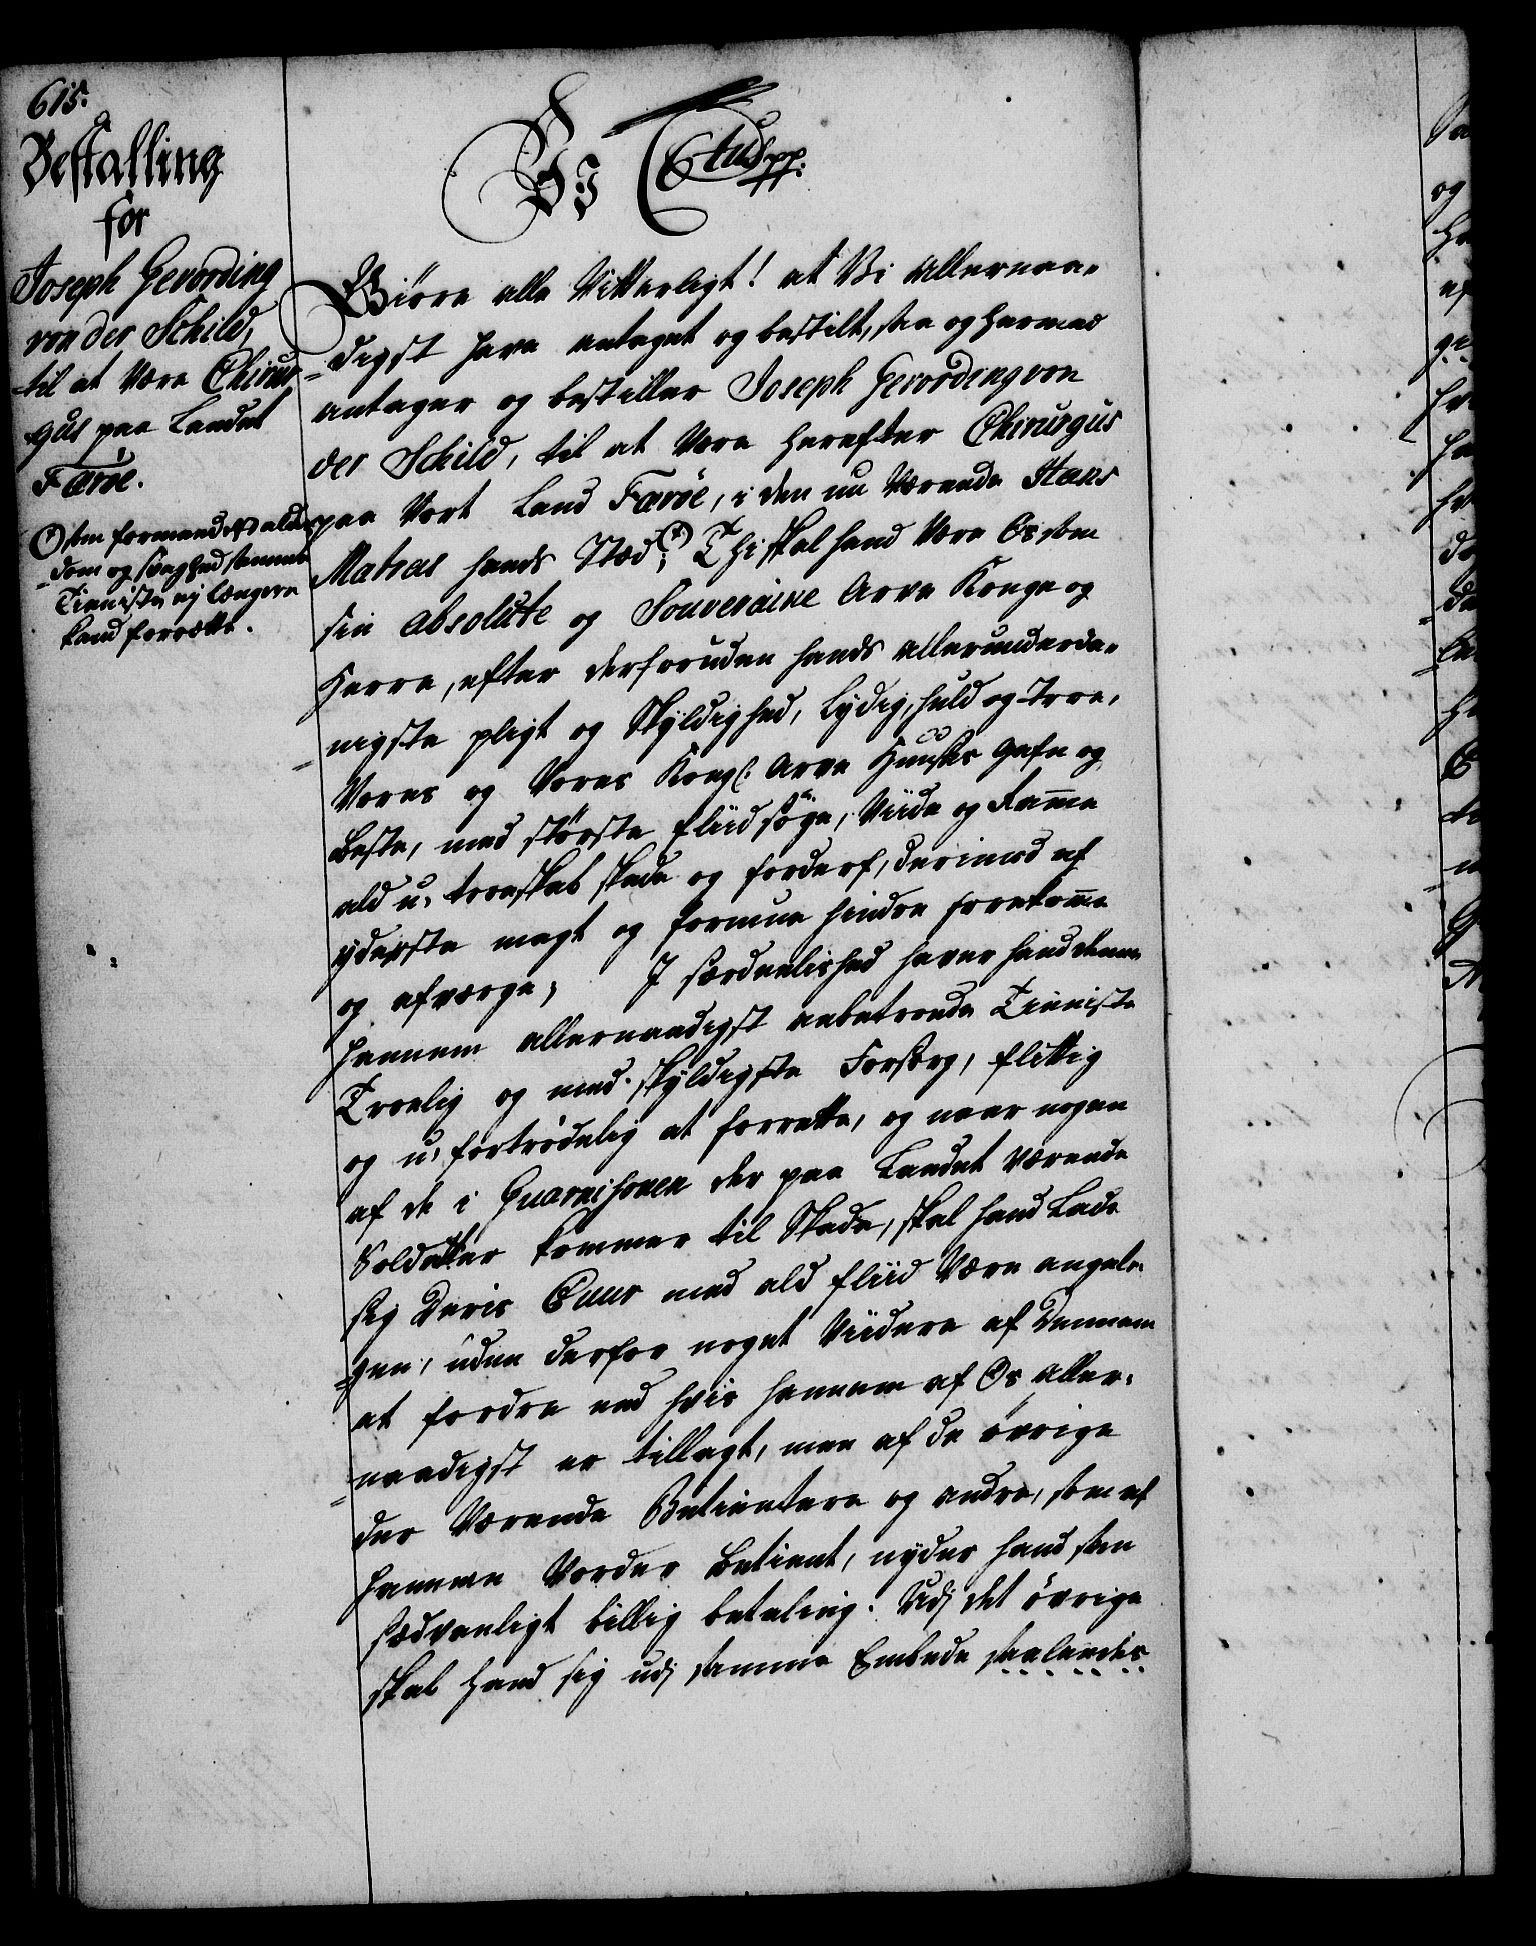 615.
Bestalling
for
Joseph Gerording
von der Schild,
til at være Chirur-
gus paa Landet
Færöe.
som formedelst alder-
dom og svaghed samme
Tieniste ej længere
kand forrette.
Vi C 6tus pp.
Giöre alle Vitterligt! at Vi Allernaa-
digst have antaget og bestilt, saa og hermed
antager og bestiller Joseph Gerording von
der Schild, til at være herefter Chirurgus
paa Vort Land Færöe, i den nu værende Hans
Matias hands Stæd; Thi skal hand være Os som
sin absolute og Souveraine Arve Konge og
Herre, efter derforuden hands allerunderda-
nigste pligt og Skyldighed, lydig, huld og troe,
Vores og Vores Kongl: Arve Huuses Gafn og
Beste, med störste fliid söge, Viide og Ramme
ald u-troeskab skade og forderf, derimod af
yderste magt og formue hindre forekomme
og afværge; I særdeelished haver hand denne
hannem allernaadigst anbetroede Tieniste
Troelig og med skyldigste Forsorg, flittig
og u-fortrödelig at forrette, og naar nogen
af de i Guarnisonen der paa Landet værende
Soldatter kommer til Skade, skal hand lade
sig Deris Cuur med ald fliid Være angele-
gen, uden derfor noget Viidere af Dennem
at fordre end hvis hannem af Os aller-
naadigst er tillagt, men af de övrige
der Værende Betientere og andre, som af
hannem Vorder betient, nyder hand saa
sædvanligt billig betaling. Udj det övrige
skal hand sig udj samme Embede saaledes